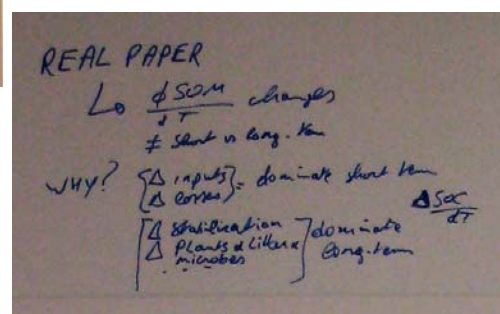 REAL PAPER
↳ ∮SOM/dT changes
≠ short vs long-term
WHY? {Δ inputs Δ losses} = dominate short term
ΔSOC/dT
[Δ Stabilization
Δ Plants & litter & microbes] dominate long-term